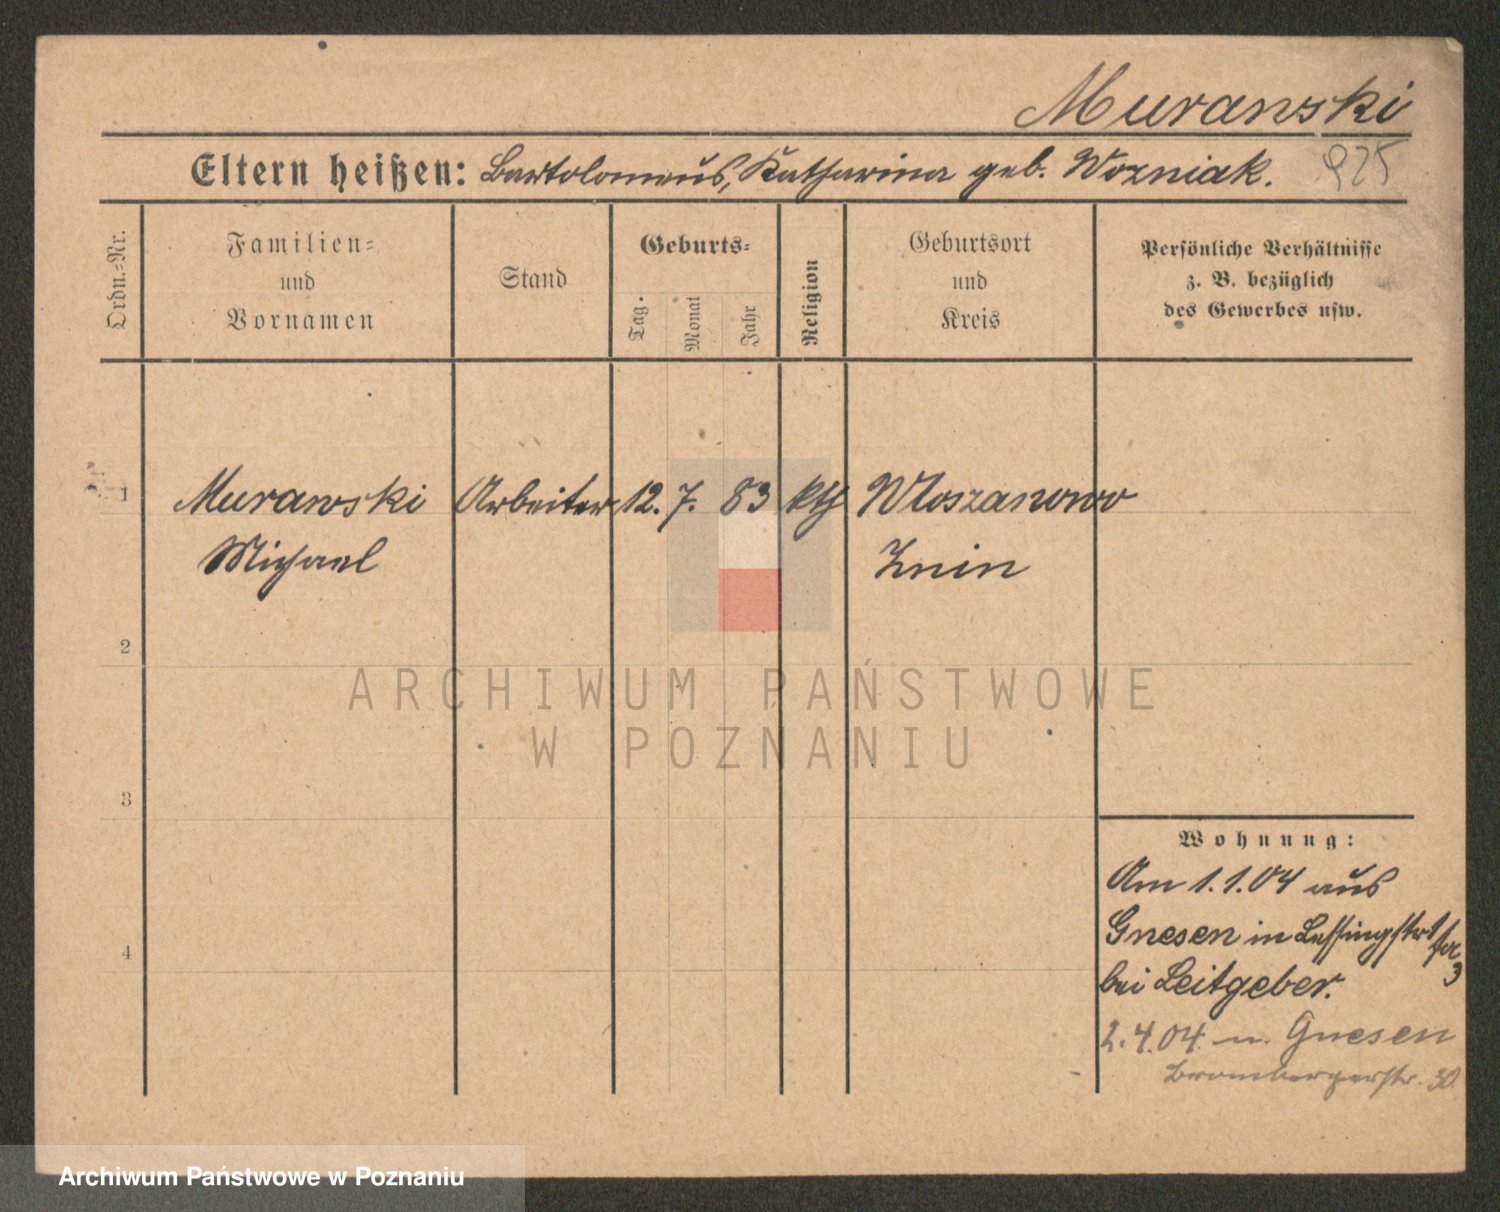 Murawski
Eltern heißen: Bartolomeus, Katharina geb. Wozniak.
925
Ordn.=Nr.
Familien=
und
Vornamen
Stand
Geburts=
Tag.
Monat
Jahr
Religion
Geburtsort
und
Kreis
Persönliche Verhältnisse
z. B. bezüglich
des Gewerbes usw.
1
Murawski Arbeiter 12. 7. 83 kth Wloszanowo
Michael Znin
2
ARCHIWUM PAŃSTWOWE
W POZNANIU
3
Wohnung:
Am 1.1.04 aus
Gnesen in Lessingstr
3
bei Leitgeber.
4
2.4.04. n. Gnesen
Brombergerstr. 30.
Archiwum Państwowe w Poznaniu